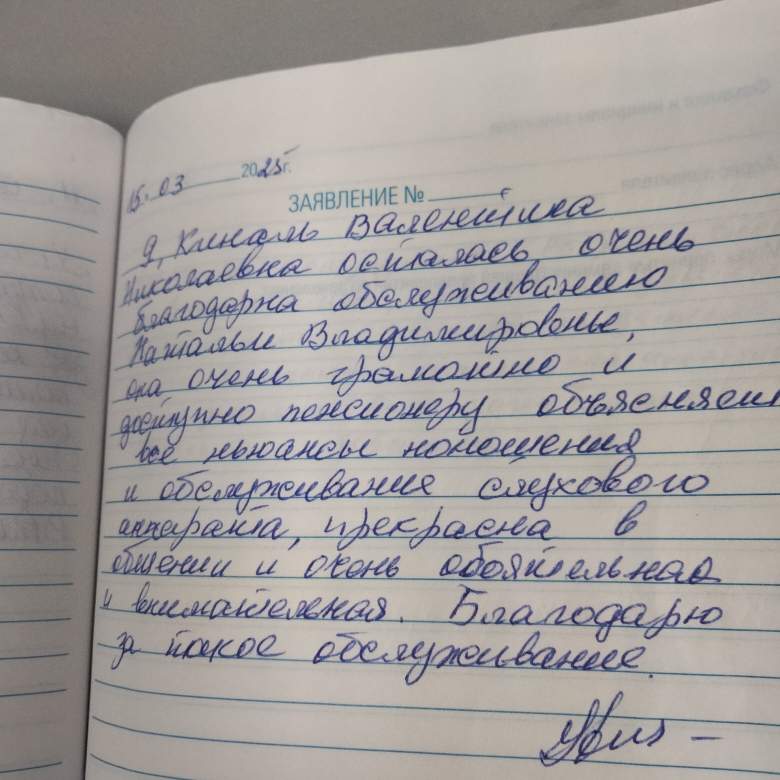 15.03 2025г.
ЗАЯВЛЕНИЕ №
Я, Киналь Валентина
Николаевна осталась очень
благодарна обслуживанию
Натальи Владимировны,
она очень грамотно и
доступно пенсионеру объясняет
все ньюансы ношения
и обслуживания слухового
аппарата, прекрасна в
общении и очень обоятельная
и внимательная. Благодарю
за такое обслуживание.